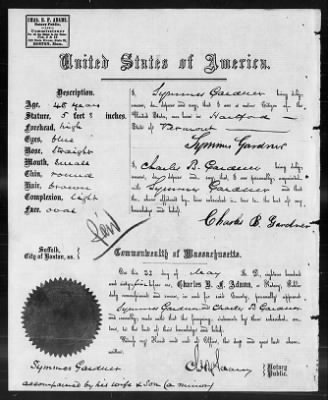 CHAS. B. F. ADAMS,
Notary Public,
Commissioner
BOSTON, Mass.
United States of America.
Description.
Age, 48 years
Stature, 5 feet 8 inches.
Forehead, high
Eyes, blue
Nose, straight
Mouth, small
Chin, round
Hair, brown
Complexion, light
Face, oval
I, Symmes Gardner being duly
sworn, do depose and say, that I am a native Citizen of the
United States, was born in Hartford
State of Vermont
Symmes Gardner
I, Charles B. Gardner being duly
sworn, do depose and say, that I am personally acquainted
with Symmes Gardner and that
the above affidavit by him subscribed is true to the best of my
knowledge and belief.
Charles B. Gardner
Suffolk,
City of Boston, ss.
Commonwealth of Massachusetts.
On this 22 day of May A. D. eighteen hundred
and before me, Charles B. F. Adams, a Notary Public,
duly commissioned and sworn, in and for said County, personally appeared
Symmes Gardner and Charles B. Gardner
and severally made oath that the foregoing statement by them subscribed are
true, to the best of their knowledge and belief.
Witness my Hand and Seal of Office, the day and year last above
written.
Notary
Public.
Symmes Gardner
accompanied by his wife & son (a minor)